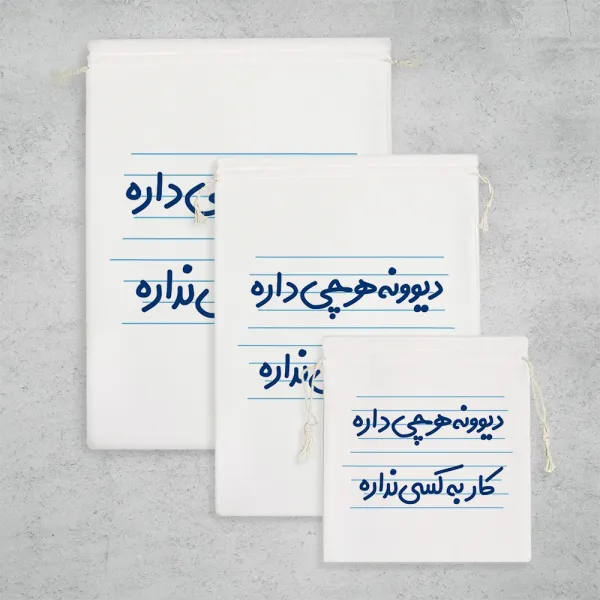 وی داره
ی نداره
دیوونه هرچی داره
ی نداره
دیوونه هرچی داره
کار به کسی نداره